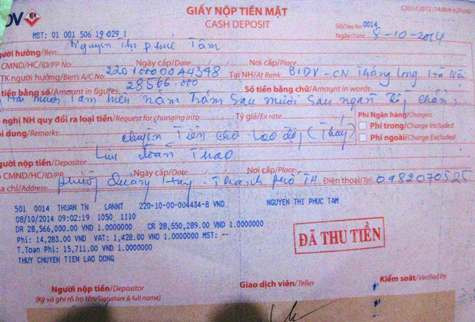 DV
GIẤY NỘP TIỀN MẶT
CASH DEPOSIT
MST: 01 001 506 19 029
Số/Seq No: 0014
Ngày/Date: 8-10-2014
Người hưởng/Ben: Nguyễn Thị Phúc Tâm
CMND/HC/ID/PP No Ngày cấp/Date: Nơi cấp/Place:
TK người hưởng/Ben A/C No 22010000444348 Tại NH/At Bank BIDV - CN Thăng Long
tiền bằng số/Amount in figures: 28566.000 Số tiền bằng chữ/Amount in words:
Hai mươi tám triệu năm trăm sáu mươi sáu ngàn chẵn
nghị NH quy đổi ra loại tiền/Request for changing into: Tỷ giá/Ex rate: Phí Ngân hàng/Charges:
Phí trong/Charge Included
Phí ngoài/Charge Excluded
dung/Remarks: chuyển Tiền cho Lao động (Thủy)
người nộp tiền/Depositor Lưu Thao
CMND/HC/ID/PP No Ngày cấp/Date: Nơi cấp/Place:
chỉ/Address: phường Quảng Hưng - Thành phố TH Điện thoại/Tel: 0982070525
501 0014 THUAN TN LANNT 220-10-00-444434-8 VND NGUYEN THI PHUC TAM
08/10/2014 09:02:19 1050 1110
DR 28,566,000.00 VND 1.0000000 CR 28,550,289.00 VND 1.0000000
Phi: 14,283.00 VND VAT: 1,428.00 VND 1.0000000 MST: --
T.Toan Phi: 15,711.00 VND 1.0000000
THUY CHUYEN TIEN LAO DONG
ĐÃ THU TIỀN
Người nộp tiền/Depositor
(Ký và ghi rõ họ tên/Signature & full name)
Giao dịch viên/Teller
Kiểm soát/Verified by